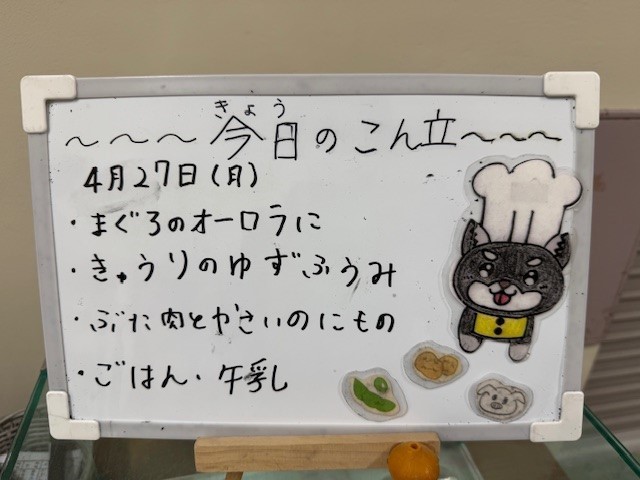 きょう
～～～今日のこん立～～～
4月27日(月)
・まぐろのオーロラに
・きゅうりのゆずふうみ
・ぶた肉とやさいのにもの
・ごはん・牛乳